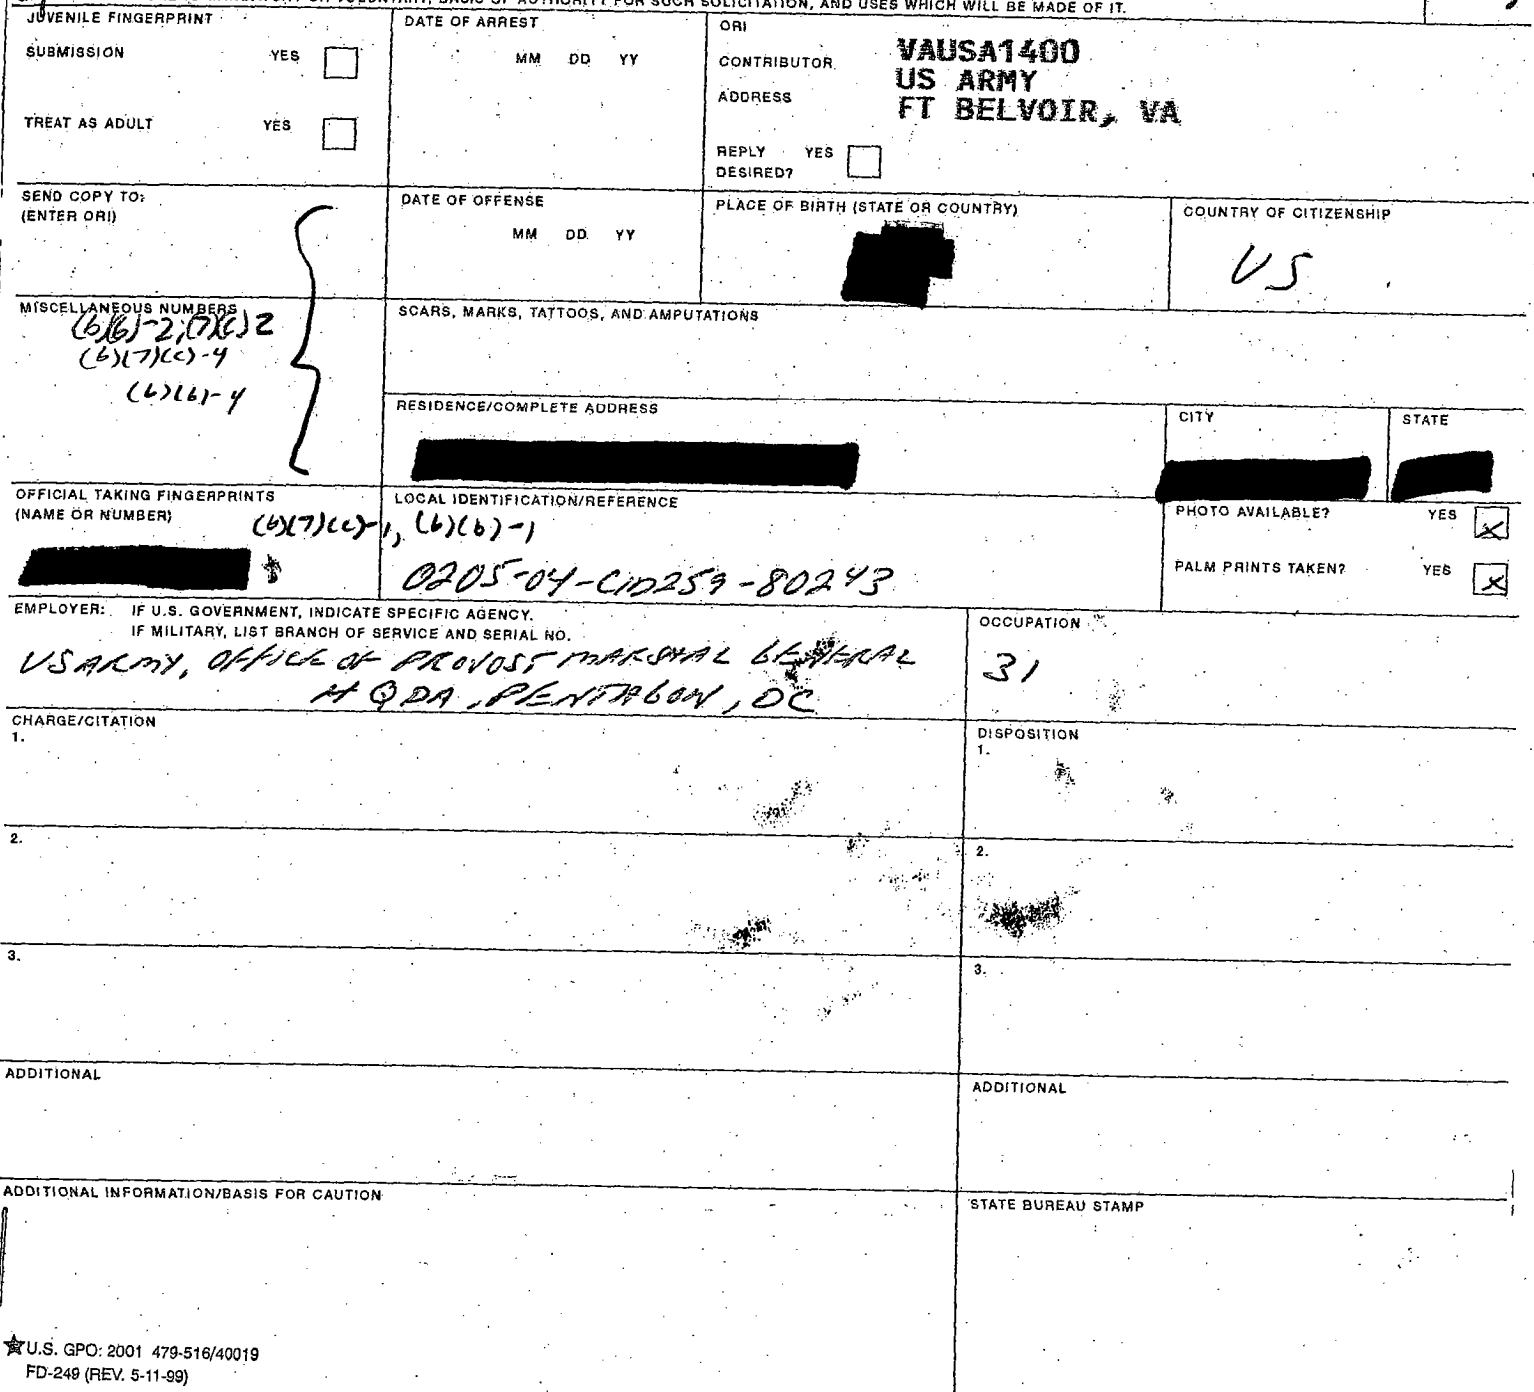 SUCH SOLICITATION, AND USES WHICH WILL BE MADE OF IT.
JUVENILE FINGERPRINT
SUBMISSION YES
TREAT AS ADULT YES
DATE OF ARREST
MM DD YY
ORI
CONTRIBUTOR
ADDRESS
VAUSA1400
US ARMY
FT BELVOIR, VA
REPLY YES
DESIRED?
SEND COPY TO:
(ENTER ORI)
DATE OF OFFENSE
MM DD YY
PLACE OF BIRTH (STATE OR COUNTRY)
COUNTRY OF CITIZENSHIP
US
MISCELLANEOUS NUMBERS
(b)(6)-2,(7)(c)2
(b)(7)(c)-4
(b)(6)-4
SCARS, MARKS, TATTOOS, AND AMPUTATIONS
RESIDENCE/COMPLETE ADDRESS
CITY
STATE
OFFICIAL TAKING FINGERPRINTS
(NAME OR NUMBER)
LOCAL IDENTIFICATION/REFERENCE
(b)(7)(c)-1, (b)(6)-1
0205-04-CID259-80243
PHOTO AVAILABLE? YES X
PALM PRINTS TAKEN? YES X
EMPLOYER: IF U.S. GOVERNMENT, INDICATE SPECIFIC AGENCY.
IF MILITARY, LIST BRANCH OF SERVICE AND SERIAL NO.
US ARMY, OFFICE OF PROVOST MARSHAL GENERAL
HQDA, PENTAGON, DC
OCCUPATION
31
CHARGE/CITATION
1.
DISPOSITION
1.
2.
2.
3.
3.
ADDITIONAL
ADDITIONAL
ADDITIONAL INFORMATION/BASIS FOR CAUTION
STATE BUREAU STAMP
U.S. GPO: 2001 479-516/40019
FD-249 (REV. 5-11-99)